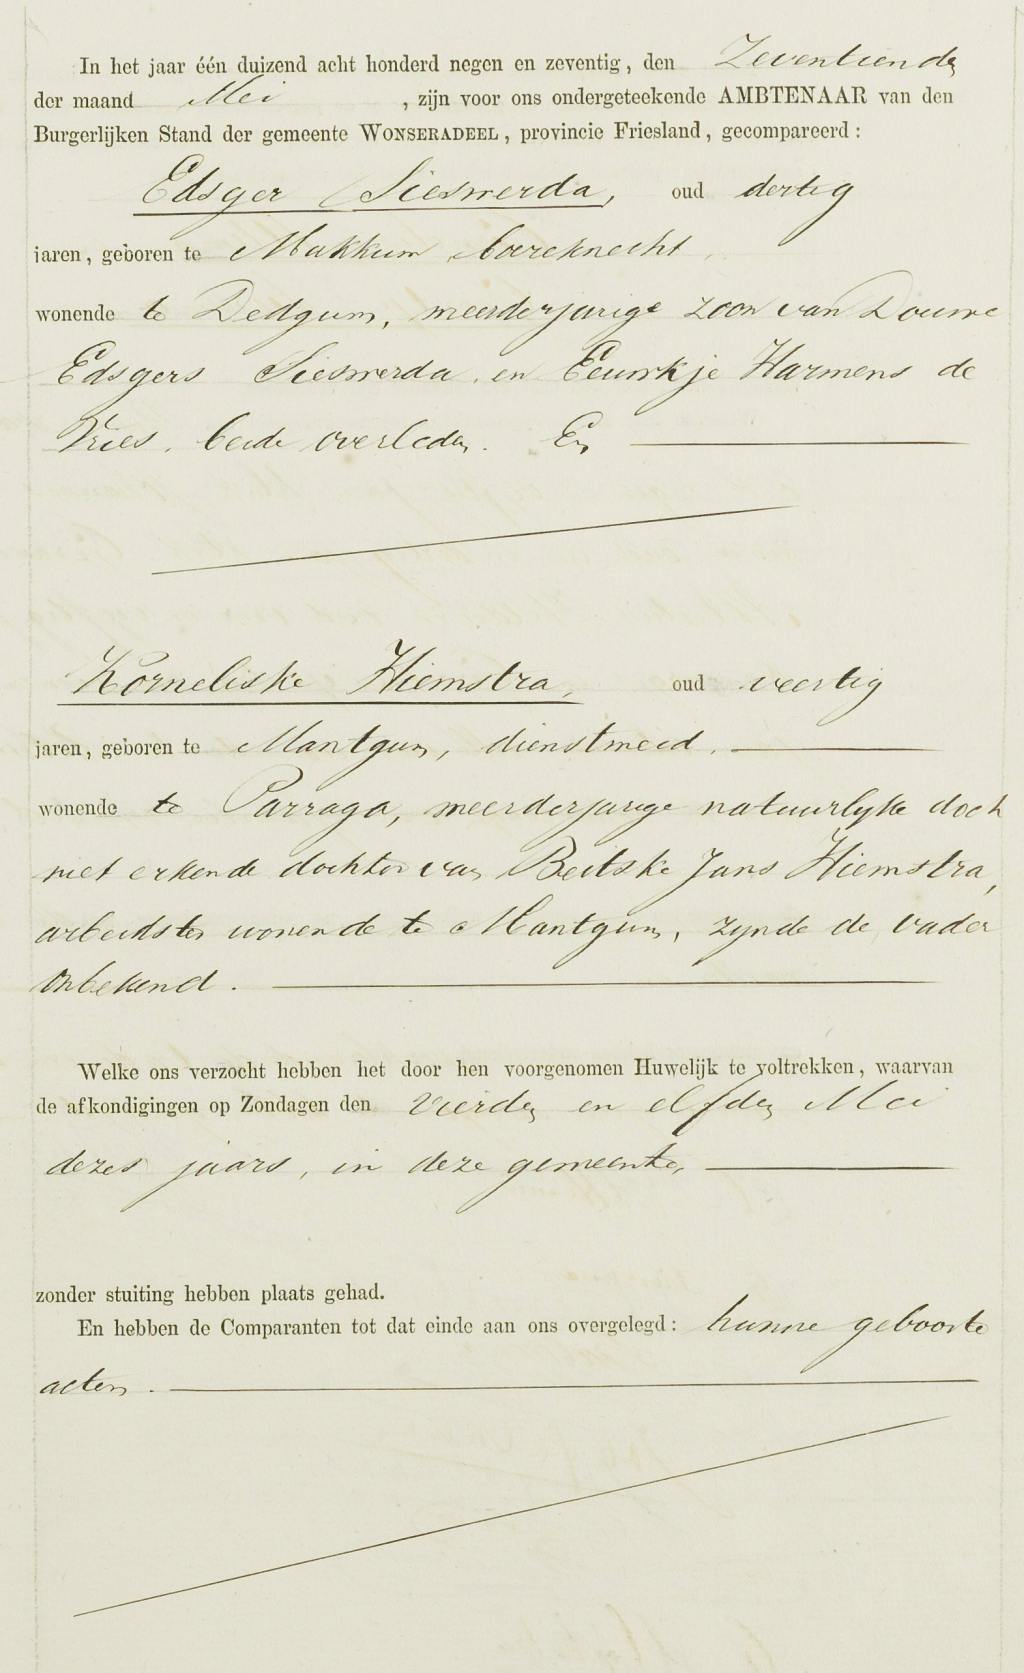 In het jaar één duizend acht honderd negen en zeventig, den Zeventienden
der maand Mei, zijn voor ons ondergeteekende AMBTENAAR van den
Burgerlijken Stand der gemeente WONSERADEEL, provincie Friesland, gecompareerd:
Edsger Sieswerda, oud dertig
jaren, geboren te Makkum, boereknecht,
wonende te Dedgum, meerderjarige zoon van Douwe
Edsgers Sieswerda en Eeuwkje Harmens de
Vries, beide overleden. En
Korneliske Hiemstra, oud veertig
jaren, geboren te Mantgum, dienstmeid,
wonende te Parraga, meerderjarige natuurlyke doch
niet erkende dochter van Beitske Jans Hiemstra,
arbeidster wonende te Mantgum, zynde de vader
onbekend.
Welke ons verzocht hebben het door hen voorgenomen Huwelijk te voltrekken, waarvan
de afkondigingen op Zondagen den Vierden en elfden Mei
dezes jaars, in deze gemeente,
zonder stuiting hebben plaats gehad.
En hebben de Comparanten tot dat einde aan ons overgelegd: hunne geboorte
acten.